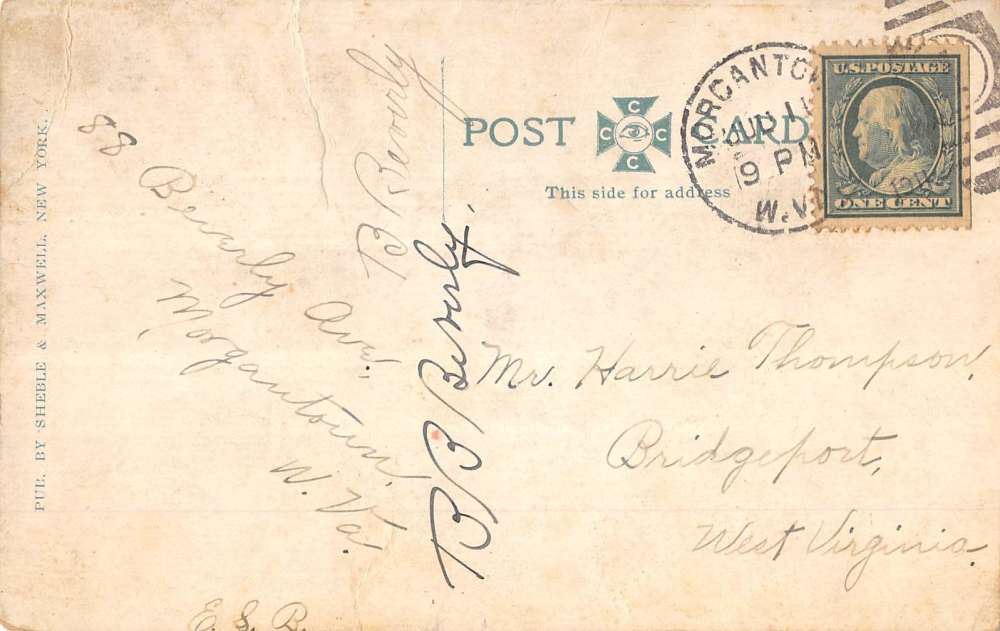 PUB. BY SHEBLE & MAXWELL, NEW YORK.
88
Beverly Ave.
Morgantown,
W. Va.
E. S. B.
B Beverly
B B Beverly.
POST CARD
C C C C
This side for address
MORGANTOWN
9 PM
W.VA.
U.S. POSTAGE
ONE CENT
Mr. Harrie Thompson,
Bridgeport,
West Virginia